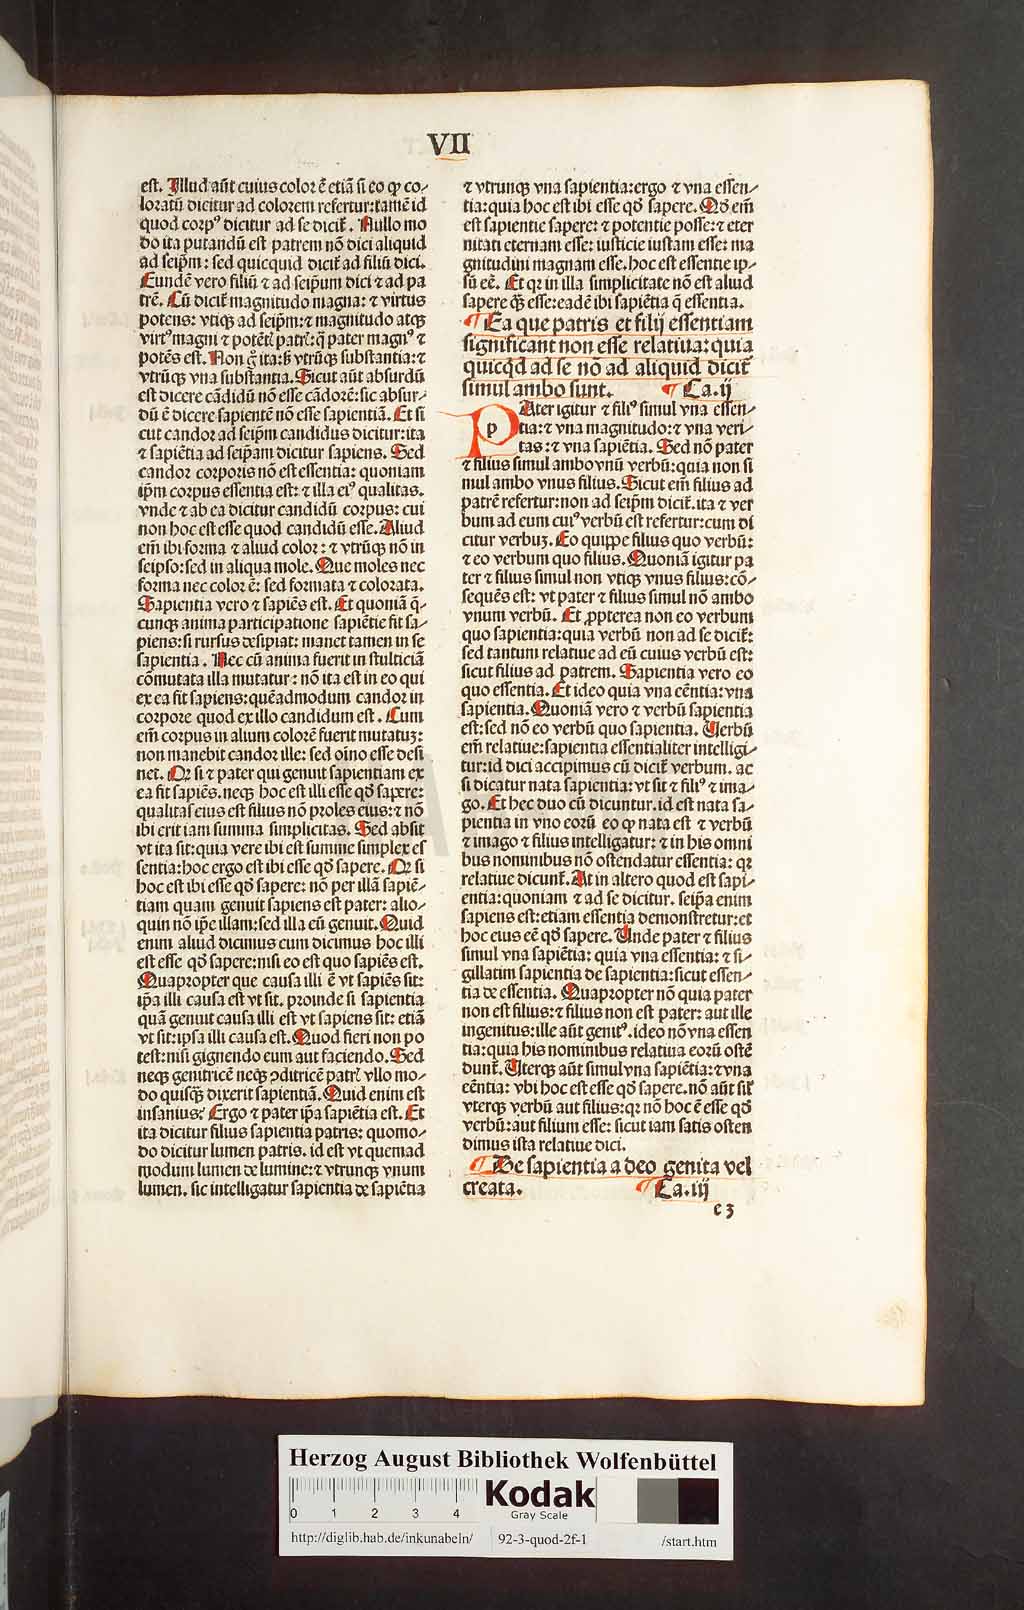 VII
est. Illud aūt cuius color ē etiā si eo ꝙ co-
loratū dicitur ad colorem refertur: tamē id
quod corpꝰ dicitur ad se dicit̄. Nullo mo
do ita putandū est patrem nō dici aliquid
ad seip̄m: sed quicquid dicit̄ ad filiū dici.
Eundē vero filiū ⁊ ad seip̄um dici ⁊ ad pa
trē. Cū dicit̄ magnitudo magna: ⁊ virtus
potens: vtiqꝫ ad seip̄m: ⁊ magnitudo atqꝫ
virtꝰ magni ⁊ potēt̄ patr̄: q̄ pater magnꝰ ⁊
potēs est. Non q̄ ita: ß vtrūqꝫ substantia: ⁊
vtrūqꝫ vna substantia. Sicut aūt absurdū
est dicere cādidū nō esse cādorē: sic absur-
dū ē dicere sapientē nō esse sapientiā. Et si
cut candor ad seip̄m candidus dicitur: ita
⁊ sapiētia ad seip̄am dicitur sapiens. Sed
candor corporis nō est essentia: quoniam
ip̄m corpus essentia est: ⁊ illa eiꝰ qualitas.
vnde ⁊ ab ea dicitur candidū corpus: cui
non hoc est esse quod candidū esse. Aliud
em̄ ibi forma ⁊ aliud color: ⁊ vtrūqꝫ nō in
seipso: sed in aliqua mole. Que moles nec
forma nec color ē: sed formata ⁊ colorata.
Sapientia vero ⁊ sapiēs est. Et quoniā q̄-
cunqꝫ anima participatione sapiētie fit sa-
piens: si rursus desipiat: manet tamen in se
sapientia. Nec cū anima fuerit in stulticiā
cōmutata illa mutatur: nō ita est in eo qui
ex ea fit sapiens: quēadmodum candor in
corpore quod ex illo candidum est. Cum
em̄ corpus in alium colorē fuerit mutatuꝫ:
non manebit candor ille: sed oīno esse desi
net. Qꝛ si ⁊ pater qui genuit sapientiam ex
ea fit sapiēs. neqꝫ hoc est illi esse qđ sapere:
qualitas eius est filius nō proles eius: ⁊ nō
ibi erit iam summa simplicitas. Sed absit
vt ita sit: quia vere ibi est summe simplex es
sentia: hoc ergo est ibi esse qđ sapere. Qꝛ si
hoc est ibi esse qđ sapere: nō per illā sapiē-
tiam quam genuit sapiens est pater: alio-
quin nō ip̄e illam: sed illa eū genuit. Quid
enim aliud dicimus cum dicimus hoc illi
est esse qđ sapere: nisi eo est quo sapiēs est.
Quapropter que causa illi ē vt sapiēs sit:
ip̄a illi causa est vt sit. proinde si sapientia
quā genuit causa illi est vt sapiens sit: etiā
vt sit: ipsa illi causa est. Quod fieri non po
test: nisi gignendo eum aut faciendo. Sed
neqꝫ genitricē neqꝫ ꝯditricē patr̄ vllo mo-
do quisqꝫ dixerit sapientiā. Quid enim est
insanius? Ergo ⁊ pater ip̄a sapiētia est. Et
ita dicitur filius sapientia patris: quomo-
do dicitur lumen patris. id est vt quemad
modum lumen de lumine: ⁊ vtrunqꝫ vnum
lumen. sic intelligatur sapientia de sapiētia
⁊ vtrunqꝫ vna sapientia: ergo ⁊ vna essen-
tia: quia hoc est ibi esse qđ sapere. Qđ em̄
est sapientie sapere: ⁊ potentie posse: ⁊ eter
nitati eternam esse: iusticie iustam esse: ma
gnitudini magnam esse. hoc est essentie ip-
sū eē. Et qꝛ in illa simplicitate nō est aliud
sapere qꝫ esse: eadē ibi sapiētia q̄ essentia.
¶ Ea que patris et filij essentiam
significant non esse relatiua: quia
quicqđ ad se nō ad aliquid dicit̄
simul ambo sunt. ¶ Ca. ij
PAter igitur ⁊ filiꝰ simul vna essen-
tia: ⁊ vna magnitudo: ⁊ vna veri-
tas: ⁊ vna sapiētia. Sed nō pater
⁊ filius simul ambo vnū verbū: quia non si
mul ambo vnus filius. Sicut em̄ filius ad
patrē refertur: non ad seip̄m dicit̄. ita ⁊ ver
bum ad eum cuiꝰ verbū est refertur: cum di
citur verbuꝫ. Eo quippe filius quo verbū:
⁊ eo verbum quo filius. Quoniā igitur pa
ter ⁊ filius simul non vtiqꝫ vnus filius: cō-
sequēs est: vt pater ⁊ filius simul nō ambo
vnum verbū. Et ꝓpterea non eo verbum
quo sapientia: quia verbū non ad se dicit̄:
sed tantum relatiue ad eū cuius verbū est:
sicut filius ad patrem. Sapientia vero eo
quo essentia. Et ideo quia vna eēntia: vna
sapientia. Quoniā vero ⁊ verbū sapientia
est: sed nō eo verbū quo sapientia. Verbū
em̄ relatiue: sapientia essentialiter intelligi-
tur: id dici accipimus cū dicit̄ verbum. ac
si dicatur nata sapientia: vt sit ⁊ filiꝰ ⁊ ima-
go. Et hec duo cū dicuntur. id est nata sa-
pientia in vno eorū eo ꝙ nata est ⁊ verbū
⁊ imago ⁊ filius intelligatur: ⁊ in his omni
bus nominibus nō ostendatur essentia: qꝛ
relatiue dicunt̄. At in altero quod est sapi-
entia: quoniam ⁊ ad se dicitur. seip̄a enim
sapiens est: etiam essentia demonstretur: et
hoc eius eē qđ sapere. Unde pater ⁊ filius
simul vna sapiētia: quia vna essentia: ⁊ si-
gillatim sapientia de sapientia: sicut essen-
tia de essentia. Quapropter nō quia pater
non est filius: ⁊ filius non est pater: aut ille
ingenitus: ille aūt genitꝰ. ideo nō vna essen
tia: quia his nominibus relatiua eorū ostē
dunt̄. Uterqꝫ aūt simul vna sapiētia: ⁊ vna
eēntia: vbi hoc est esse qđ sapere. nō aūt sil̄
vterqꝫ verbū aut filius: qꝛ nō hoc ē esse qđ
verbū: aut filium esse: sicut iam satis osten
dimus ista relatiue dici.
¶ De sapientia a deo genita vel
creata. ¶ Ca. iij
c 3
Herzog August Bibliothek Wolfenbüttel
0 1 2 3 4
Kodak
Gray Scale
http://diglib.hab.de/inkunabeln/ 92-3-quod-2f-1 /start.htm